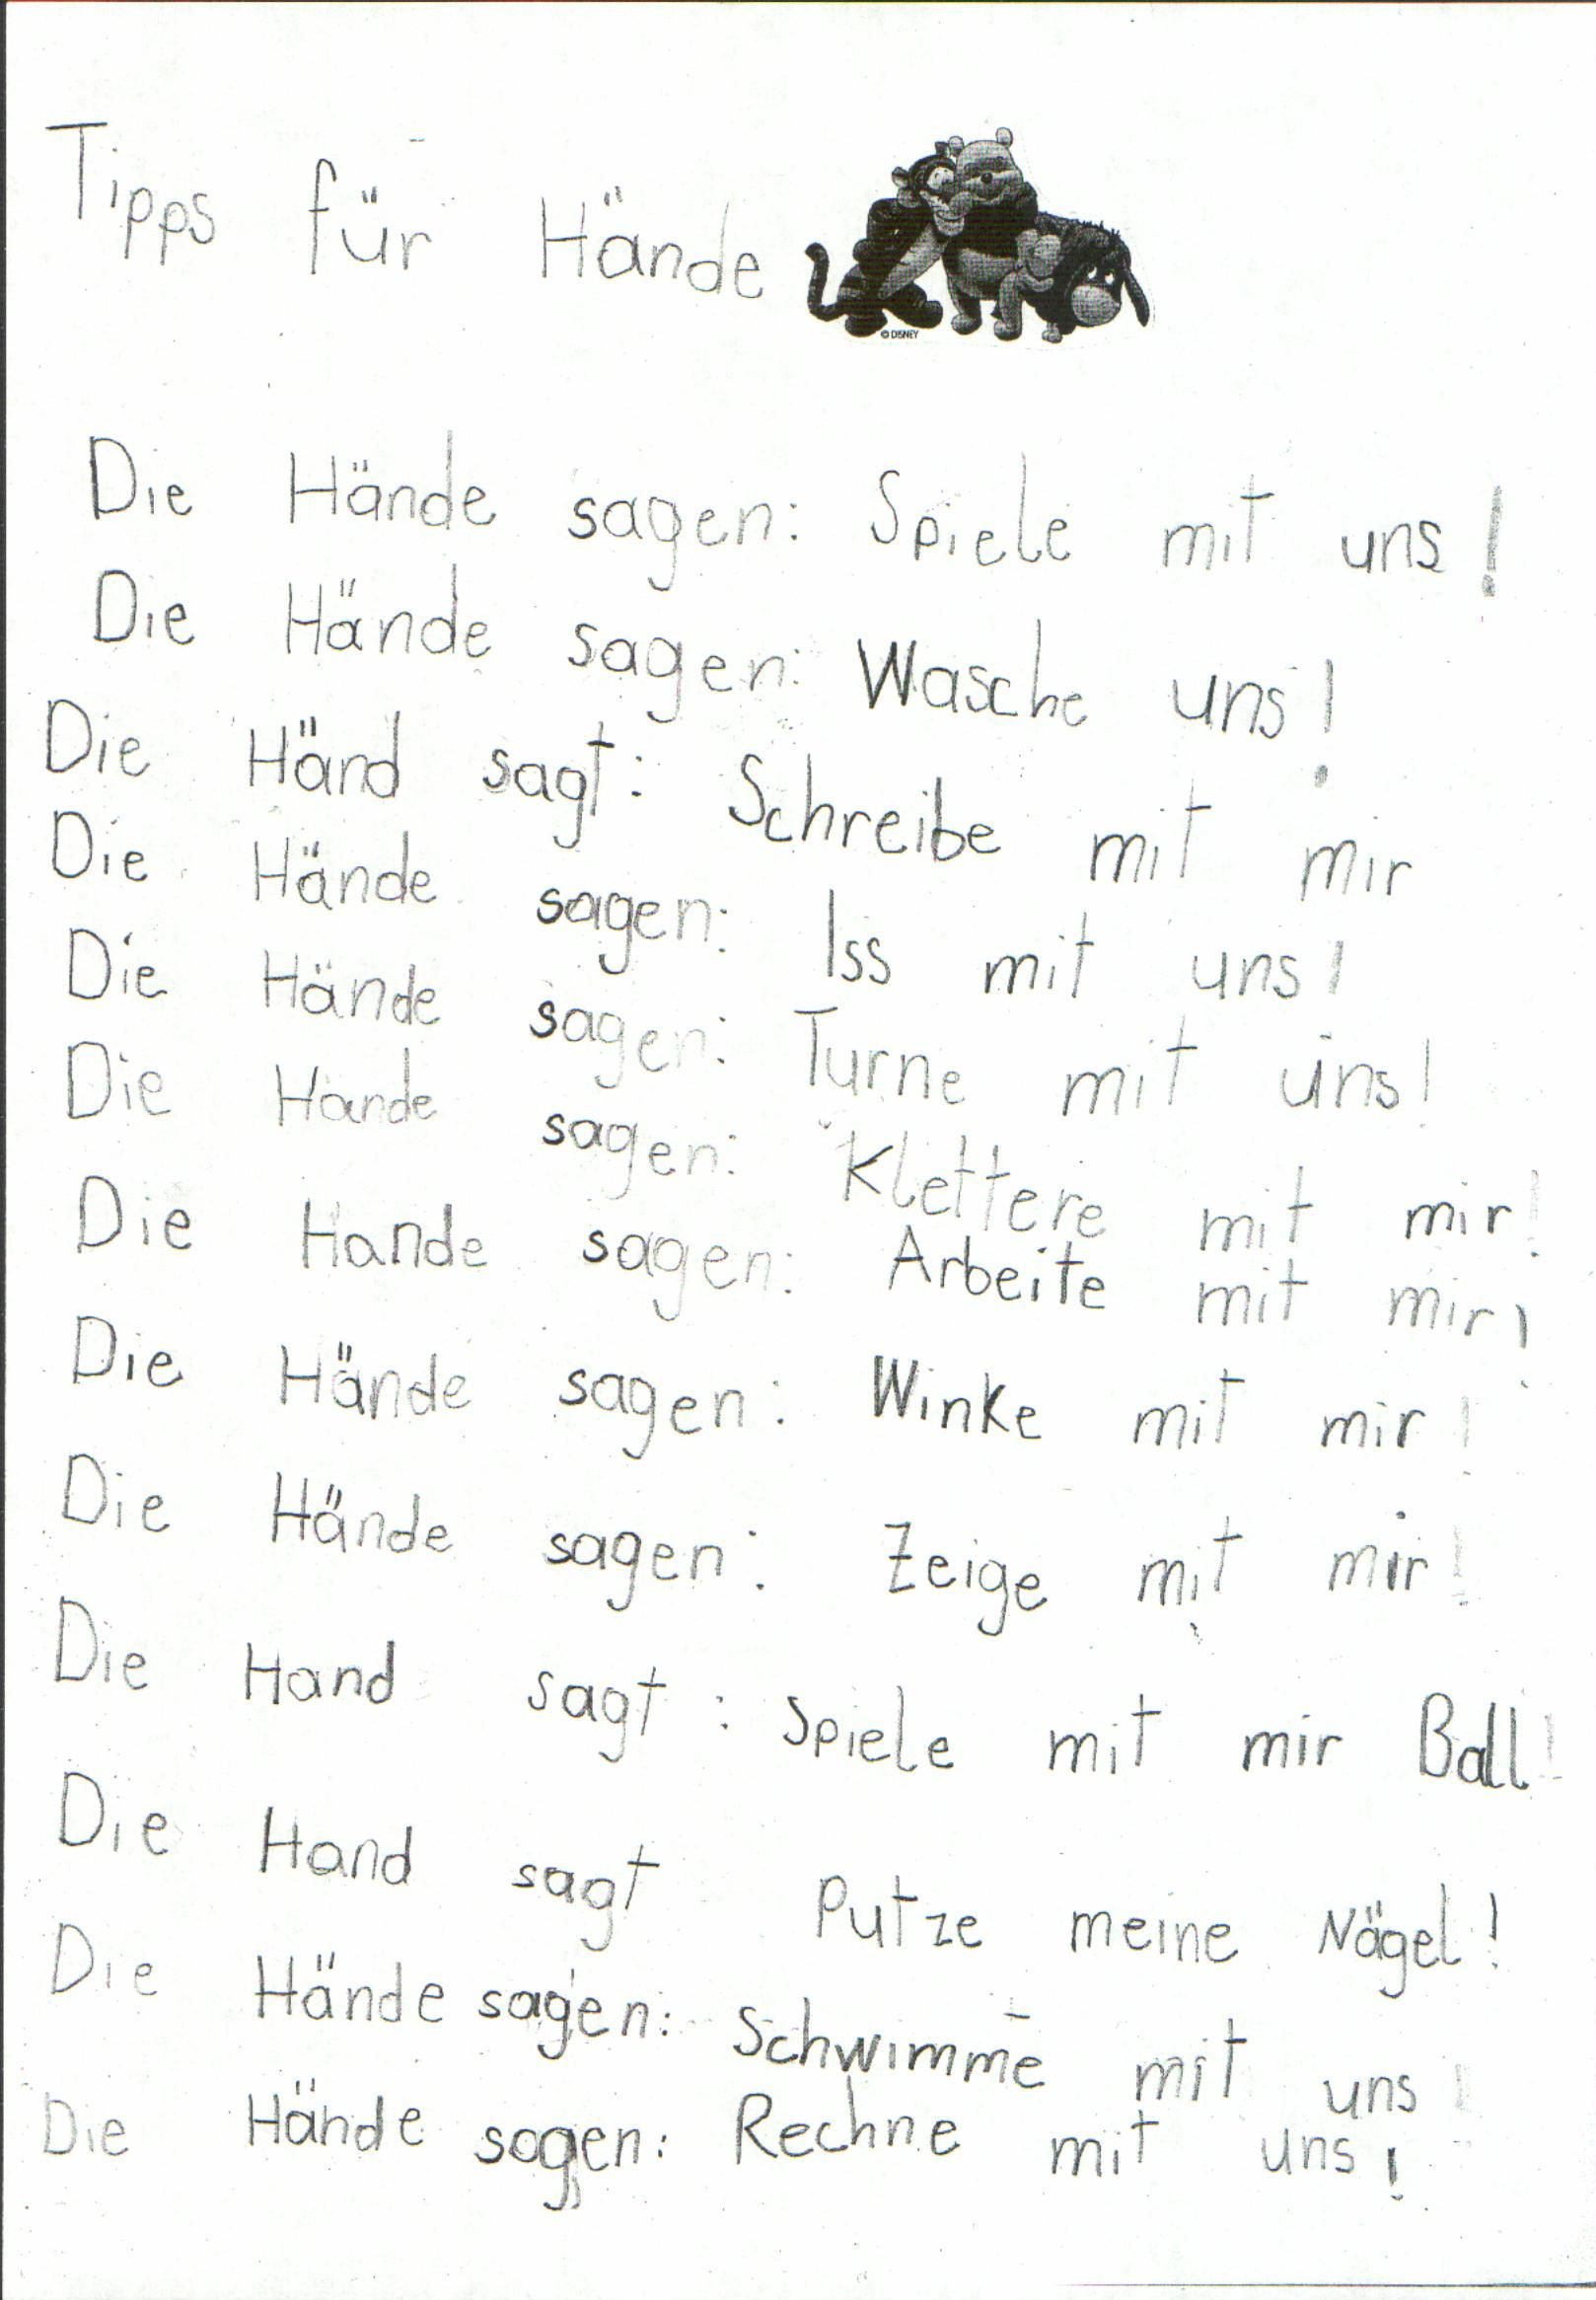 Tipps für Hände
© DISNEY
Die Hände sagen: Spiele mit uns!
Die Hände sagen: Wasche uns!
Die Händ sagt: Schreibe mit mir
Die Hände sagen: Iss mit uns!
Die Hände sagen: Turne mit uns!
Die Hande sagen: Klettere mit mir!
Die Hande sagen: Arbeite mit mir!
Die Hände sagen: Winke mit mir!
Die Hände sagen: Zeige mit mir!
Die Hand sagt: Spiele mit mir Ball!
Die Hand sagt Putze meine Nägel!
Die Hände sagen: Schwimme mit uns!
Die Hände sagen: Rechne mit uns!